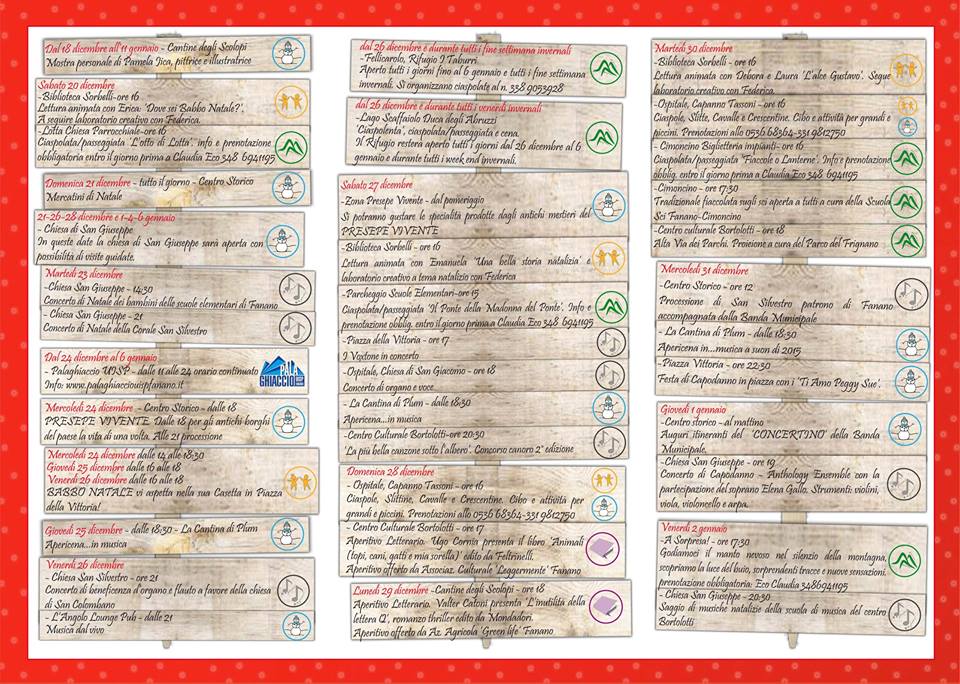 Dal 18 dicembre all'11 gennaio - Cantine degli Scolopi
Mostra personale di Pamela Jica, pittrice e illustratrice
Sabato 20 dicembre
-Biblioteca Sorbelli-ore 16
Lettura animata con Erica: 'Dove sei Babbo Natale?'.
A seguire laboratorio creativo con Federica.
-Lotta Chiesa Parrocchiale-ore 16
Ciaspolata/passeggiata 'L'otto di Lotta'. info e prenotazione
obbligatoria entro il giorno prima a Claudia Eco 348 6941195
Domenica 21 dicembre - tutto il giorno - Centro Storico
Mercatini di Natale
21-26-28 dicembre e 1-4-6 gennaio
- Chiesa di San Giuseppe
In queste date la chiesa di San Giuseppe sarà aperta con
possibilità di visite guidate.
Martedì 23 dicembre
-Chiesa San Giuseppe - 14:30
Concerto di Natale dei bambini delle scuole elementari di Fanano
- Chiesa San Giuseppe - 21
Concerto di Natale della Corale San Silvestro
Dal 24 dicembre al 6 gennaio
- Palaghiaccio UISP - dalle 11 alle 24 orario continuato
Info: www.palaghiacciouispfanano.it
PALA
GHIACCIO
Mercoledì 24 dicembre - Centro Storico - dalle 18
PRESEPE VIVENTE. Dalle 18 per gli antichi borghi
del paese la vita di una volta. Alle 21 processione
Mercoledì 24 dicembre dalle 14 alle 18:30
Giovedì 25 dicembre dalle 16 alle 18
Venerdì 26 dicembre dalle 16 alle 18
BABBO NATALE vi aspetta nella sua Casetta in Piazza
della Vittoria!
Giovedì 25 dicembre - dalle 18:30 - La Cantina di Plum
Apericena...in musica
Venerdì 26 dicembre
- Chiesa San Silvestro - ore 21
Concerto di beneficenza d'organo e flauto a favore della chiesa
di San Colombano
- L'Angolo Lounge Pub - dalle 21
Musica dal vivo
dal 26 dicembre e durante tutti i fine settimana invernali
-Fellicarolo, Rifugio I Taburri
Aperto tutti i giorni fino al 6 gennaio e tutti i fine settimana
invernali. Si organizzano ciaspolate al n. 338 9053928
dal 26 dicembre e durante tutti i venerdì invernali
-Lago Scaffaiolo Duca degli Abruzzi
'Ciaspolenta', ciaspolata/passeggiata e cena.
Il Rifugio resterà aperto tutti i giorni dal 26 dicembre al 6
gennaio e durante tutti i week end invernali.
Sabato 27 dicembre
-Zona Presepe Vivente - dal pomeriggio
Si potranno gustare le specialità prodotte dagli antichi mestieri del
PRESEPE VIVENTE
-Biblioteca Sorbelli - ore 16
Lettura animata con Emanuela 'Una bella storia natalizia' e
laboratorio creativo a tema natalizio con Federica
-Parcheggio Scuole Elementari-ore 15
Ciaspolata/passeggiata 'Il Ponte della Madonna del Ponte'. Info e
prenotazione obblig. entro il giorno prima a Claudia Eco 348 6941195
-Piazza della Vittoria - ore 17
I Voxtone in concerto
- Ospitale, Chiesa di San Giacomo - ore 18
Concerto di organo e voce
- La Cantina di Plum - dalle 18:30
Apericena...in musica
-Centro Culturale Bortolotti-ore 20:30
'La più bella canzone sotto l'albero'. Concorso canoro 2° edizione
Domenica 28 dicembre
- Ospitale, Capanno Tassoni - ore 16
Ciaspole, Slittine, Cavalle e Crescentine. Cibo e attività per
grandi e piccini. Prenotazioni allo 0536 68364-331 9812750
- Centro Culturale Bortolotti - ore 17
Aperitivo Letterario. Ugo Cornia presenta il libro 'Animali
(topi, cani, gatti e mia sorella)' edito da Feltrinelli.
Aperitivo offerto da Associaz. Culturale 'Leggermente' Fanano
Lunedì 29 dicembre -Cantine degli Scolopi - ore 18
Aperitivo Letterario. Valter Catoni presenta 'L'inutilità della
lettera Q', romanzo thriller edito da Mondadori.
Aperitivo offerto da Az. Agricola 'Green life' Fanano
Martedì 30 dicembre
-Biblioteca Sorbelli - ore 16
Lettura animata con Debora e Laura 'L'alce Gustavo'. Segue
laboratorio creativo con Federica.
-Ospitale, Capanno Tassoni - ore 16
Ciaspole, Slitte, Cavalle e Crescentine. Cibo e attività per grandi e
piccini. Prenotazioni allo 0536 68364-331 9812750
-Cimoncino Biglietteria impianti- ore 16
Ciaspolata/passeggiata 'Fiaccole o Lanterne'. Info e prenotazione
obblig. entro il giorno prima a Claudia Eco 348 6941195
-Cimoncino - ore 17:30
Tradizionale fiaccolata sugli sci aperta a tutti a cura della Scuola
Sci Fanano-Cimoncino
-Centro culturale Bortolotti - ore 18
Alta Via dei Parchi. Proiezione a cura del Parco del Frignano
Mercoledì 31 dicembre
-Centro Storico - ore 12
Processione di San Silvestro patrono di Fanano
accompagnata dalla Banda Municipale
- La Cantina di Plum - dalle 18:30
Apericena in...musica a suon di 2015
-Piazza Vittoria - ore 22:30
Festa di Capodanno in piazza con i 'Ti Amo Peggy Sue'.
Giovedì 1 gennaio
-Centro storico - al mattino
Auguri itineranti del 'CONCERTINO' della Banda
Municipale.
-Chiesa San Giuseppe - ore 19
Concerto di Capodanno - Anthology Ensemble con la
partecipazione del soprano Elena Gallo. Strumenti: violini,
viola, violoncello e arpa.
Venerdì 2 gennaio
-A Sorpresa! - ore 17:30
Godiamoci il manto nevoso nel silenzio della montagna,
scopriamo la luce del buio, sorprendenti tracce e nuove sensazioni.
prenotazione obbligatoria: Eco Claudia 3486941195
-Chiesa San Giuseppe - 20:30
Saggio di musiche natalizie della scuola di musica del centro
Bortolotti